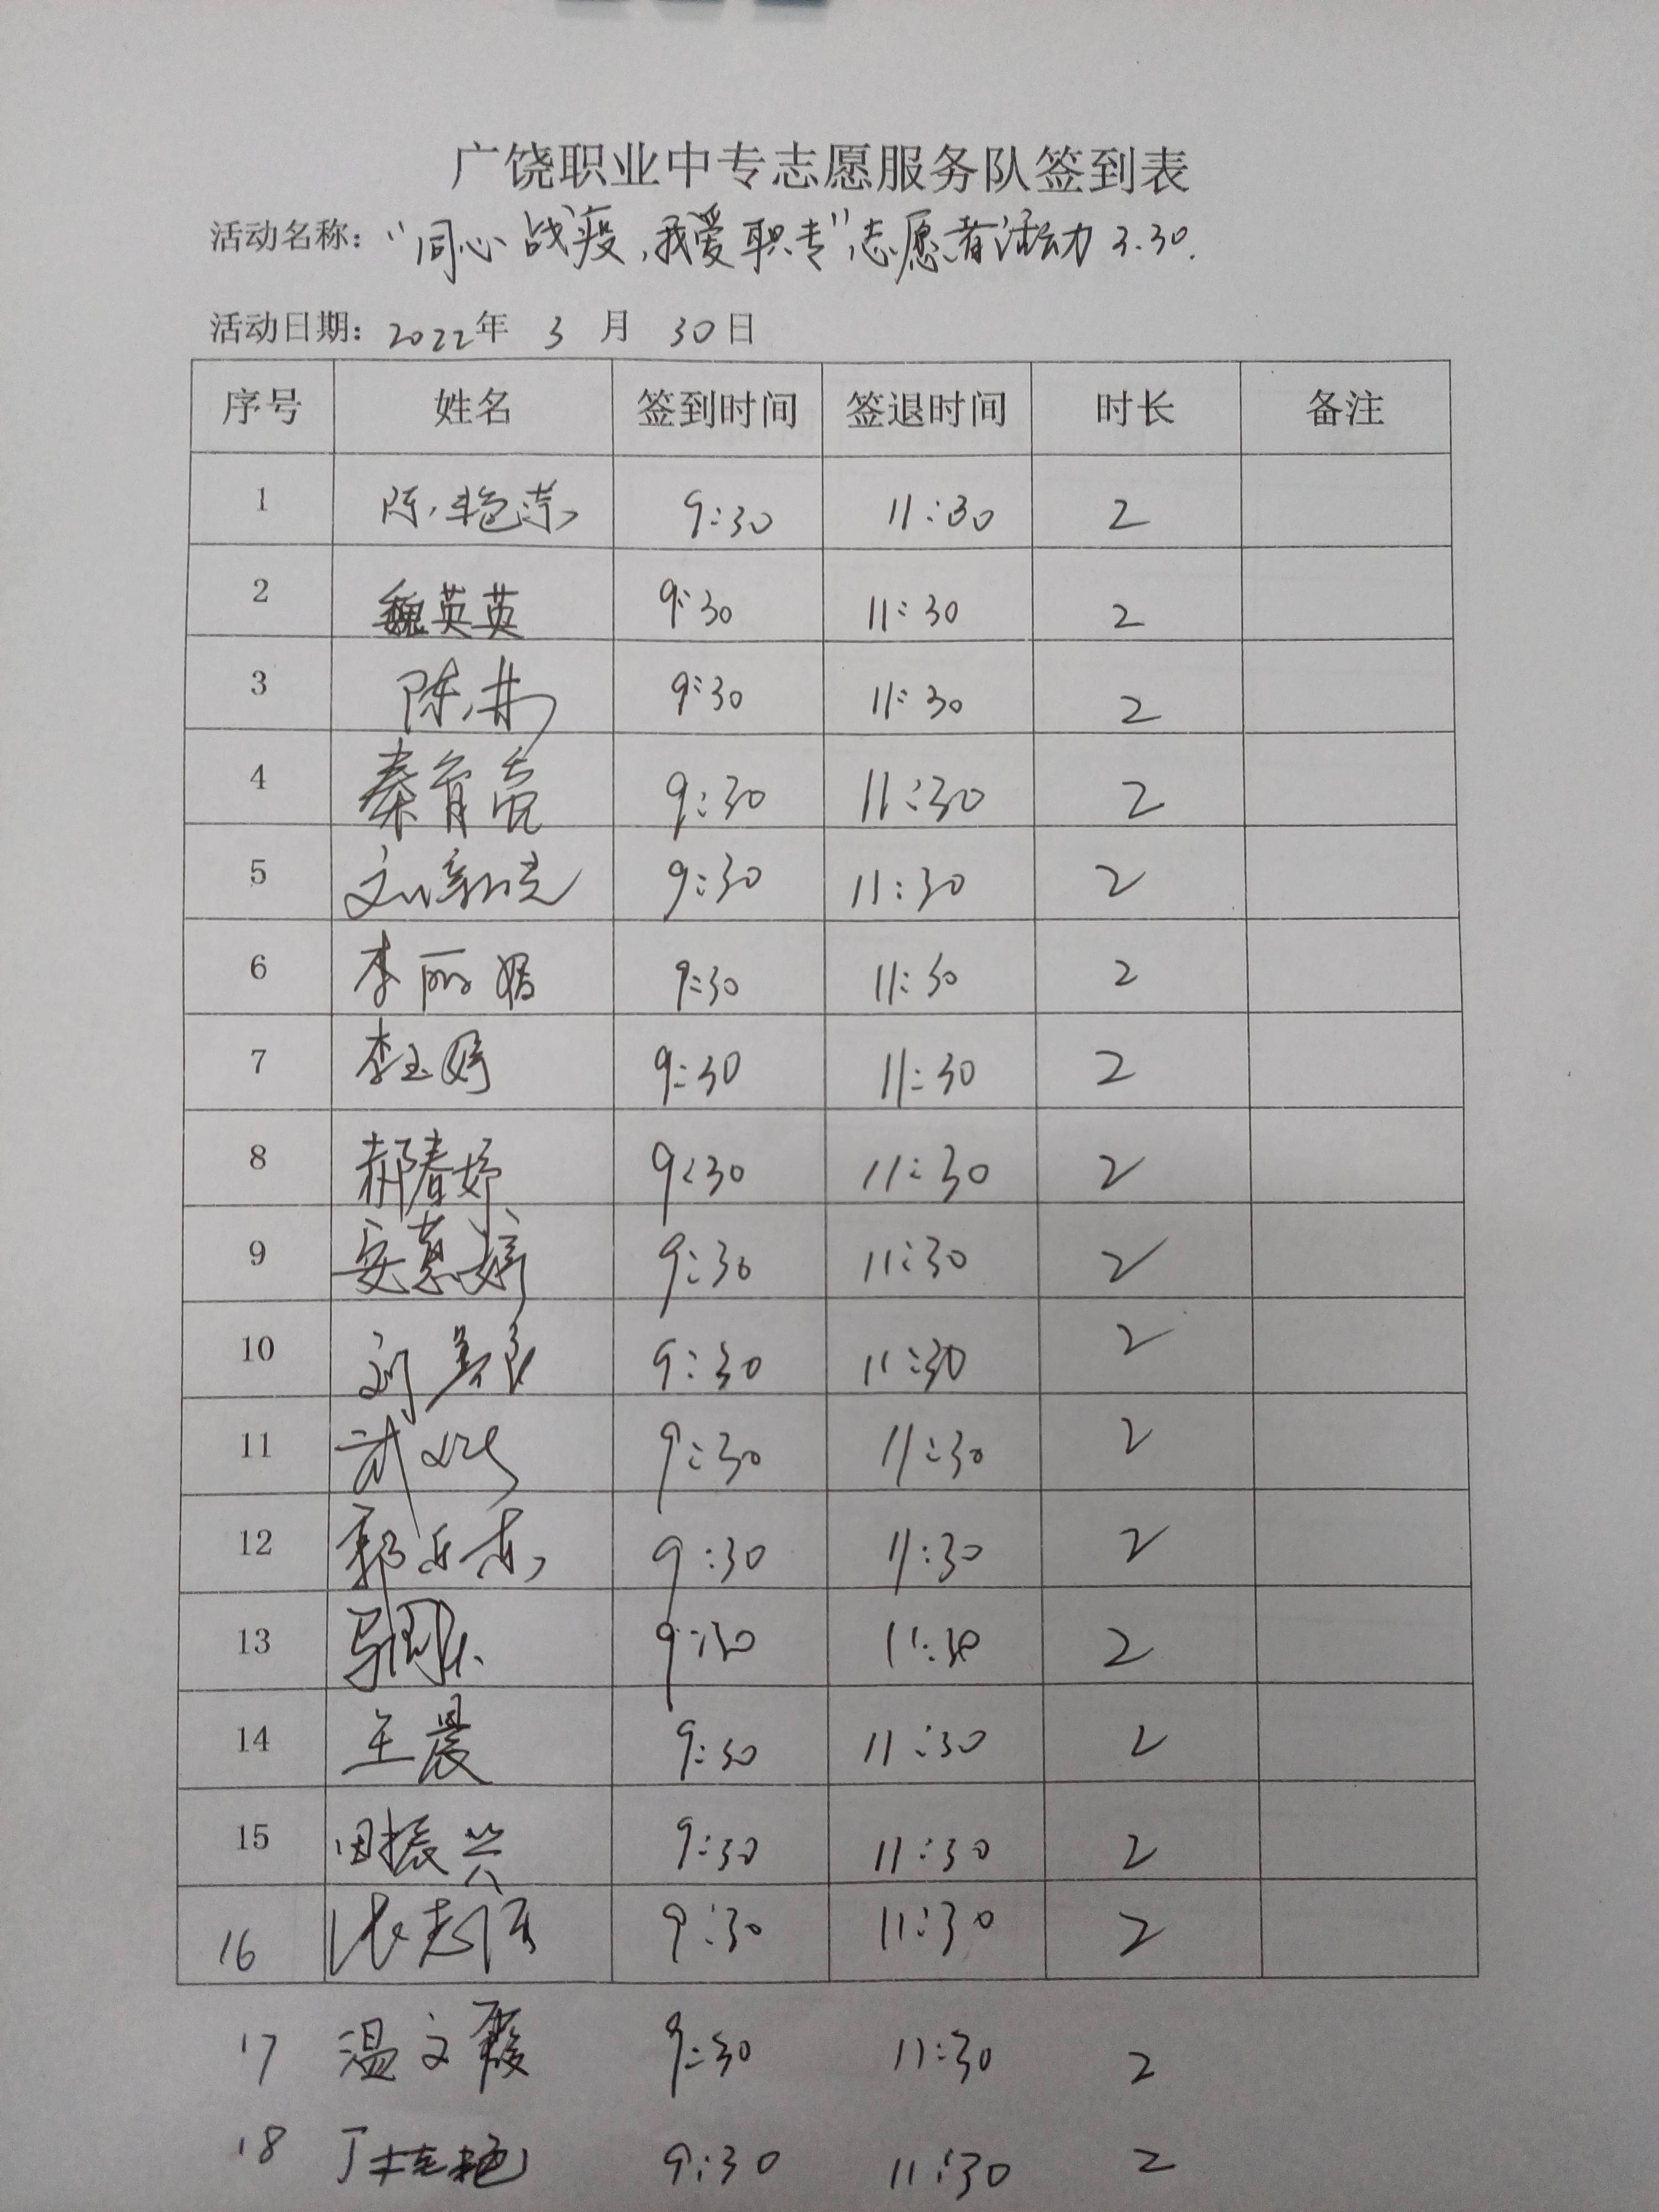 广饶职业中专志愿服务队签到表
活动名称："同心战疫,我爱职专"志愿者活动 3.30.
活动日期：2022年 3 月 30日
序号 姓名 签到时间 签退时间 时长 备注
1 陈艳荣 9:30 11:30 2
2 魏英英 9:30 11:30 2
3 陈 9:30 11:30 2
4 秦 9:30 11:30 2
5 刘 9:30 11:30 2
6 李丽娟 9:30 11:30 2
7 李玉婷 9:30 11:30 2
8 郝春婷 9:30 11:30 2
9 安慧婷 9:30 11:30 2
10 刘 9:30 11:30 2
11 武 9:30 11:30 2
12 郭 9:30 11:30 2
13 9:30 11:30 2
14 王晨 9:30 11:30 2
15 田振兴 9:30 11:30 2
16 张志 9:30 11:30 2
17 温文霞 9:30 11:30 2
18 丁桂艳 9:30 11:30 2